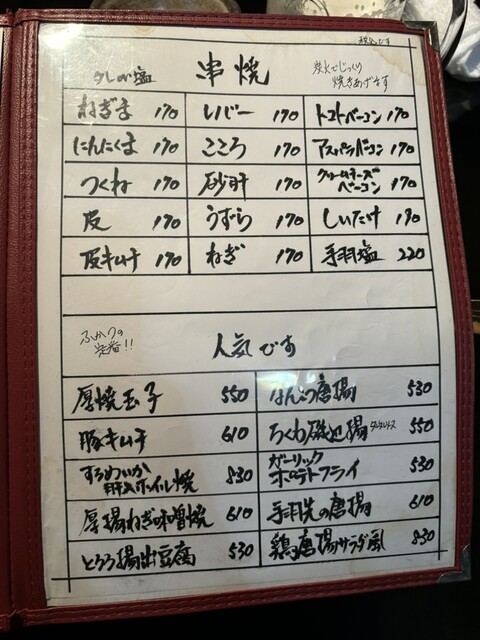 税込です
タレor塩 串焼 炭火でじっくり
焼きあげます
ねぎま 170 レバー 170 トマトベーコン 170
にんにくま 170 こころ 170 アスパラベーコン 170
つくね 170 砂肝 170 クリームチーズベーコン 170
皮 170 うずら 170 しいたけ 170
皮キムチ 170 ねぎ 170 手羽塩 220
定番!!
人気です
厚焼玉子 550 なんこつ唐揚 530
豚キムチ 610 ちくわ磯辺揚 550
するめいか肝入ホイル焼 830 ガーリックポテトフライ 530
厚揚ねぎ味噌焼 610 手羽先の唐揚 610
とろろ揚出豆腐 530 鶏唐揚サラダ風 830